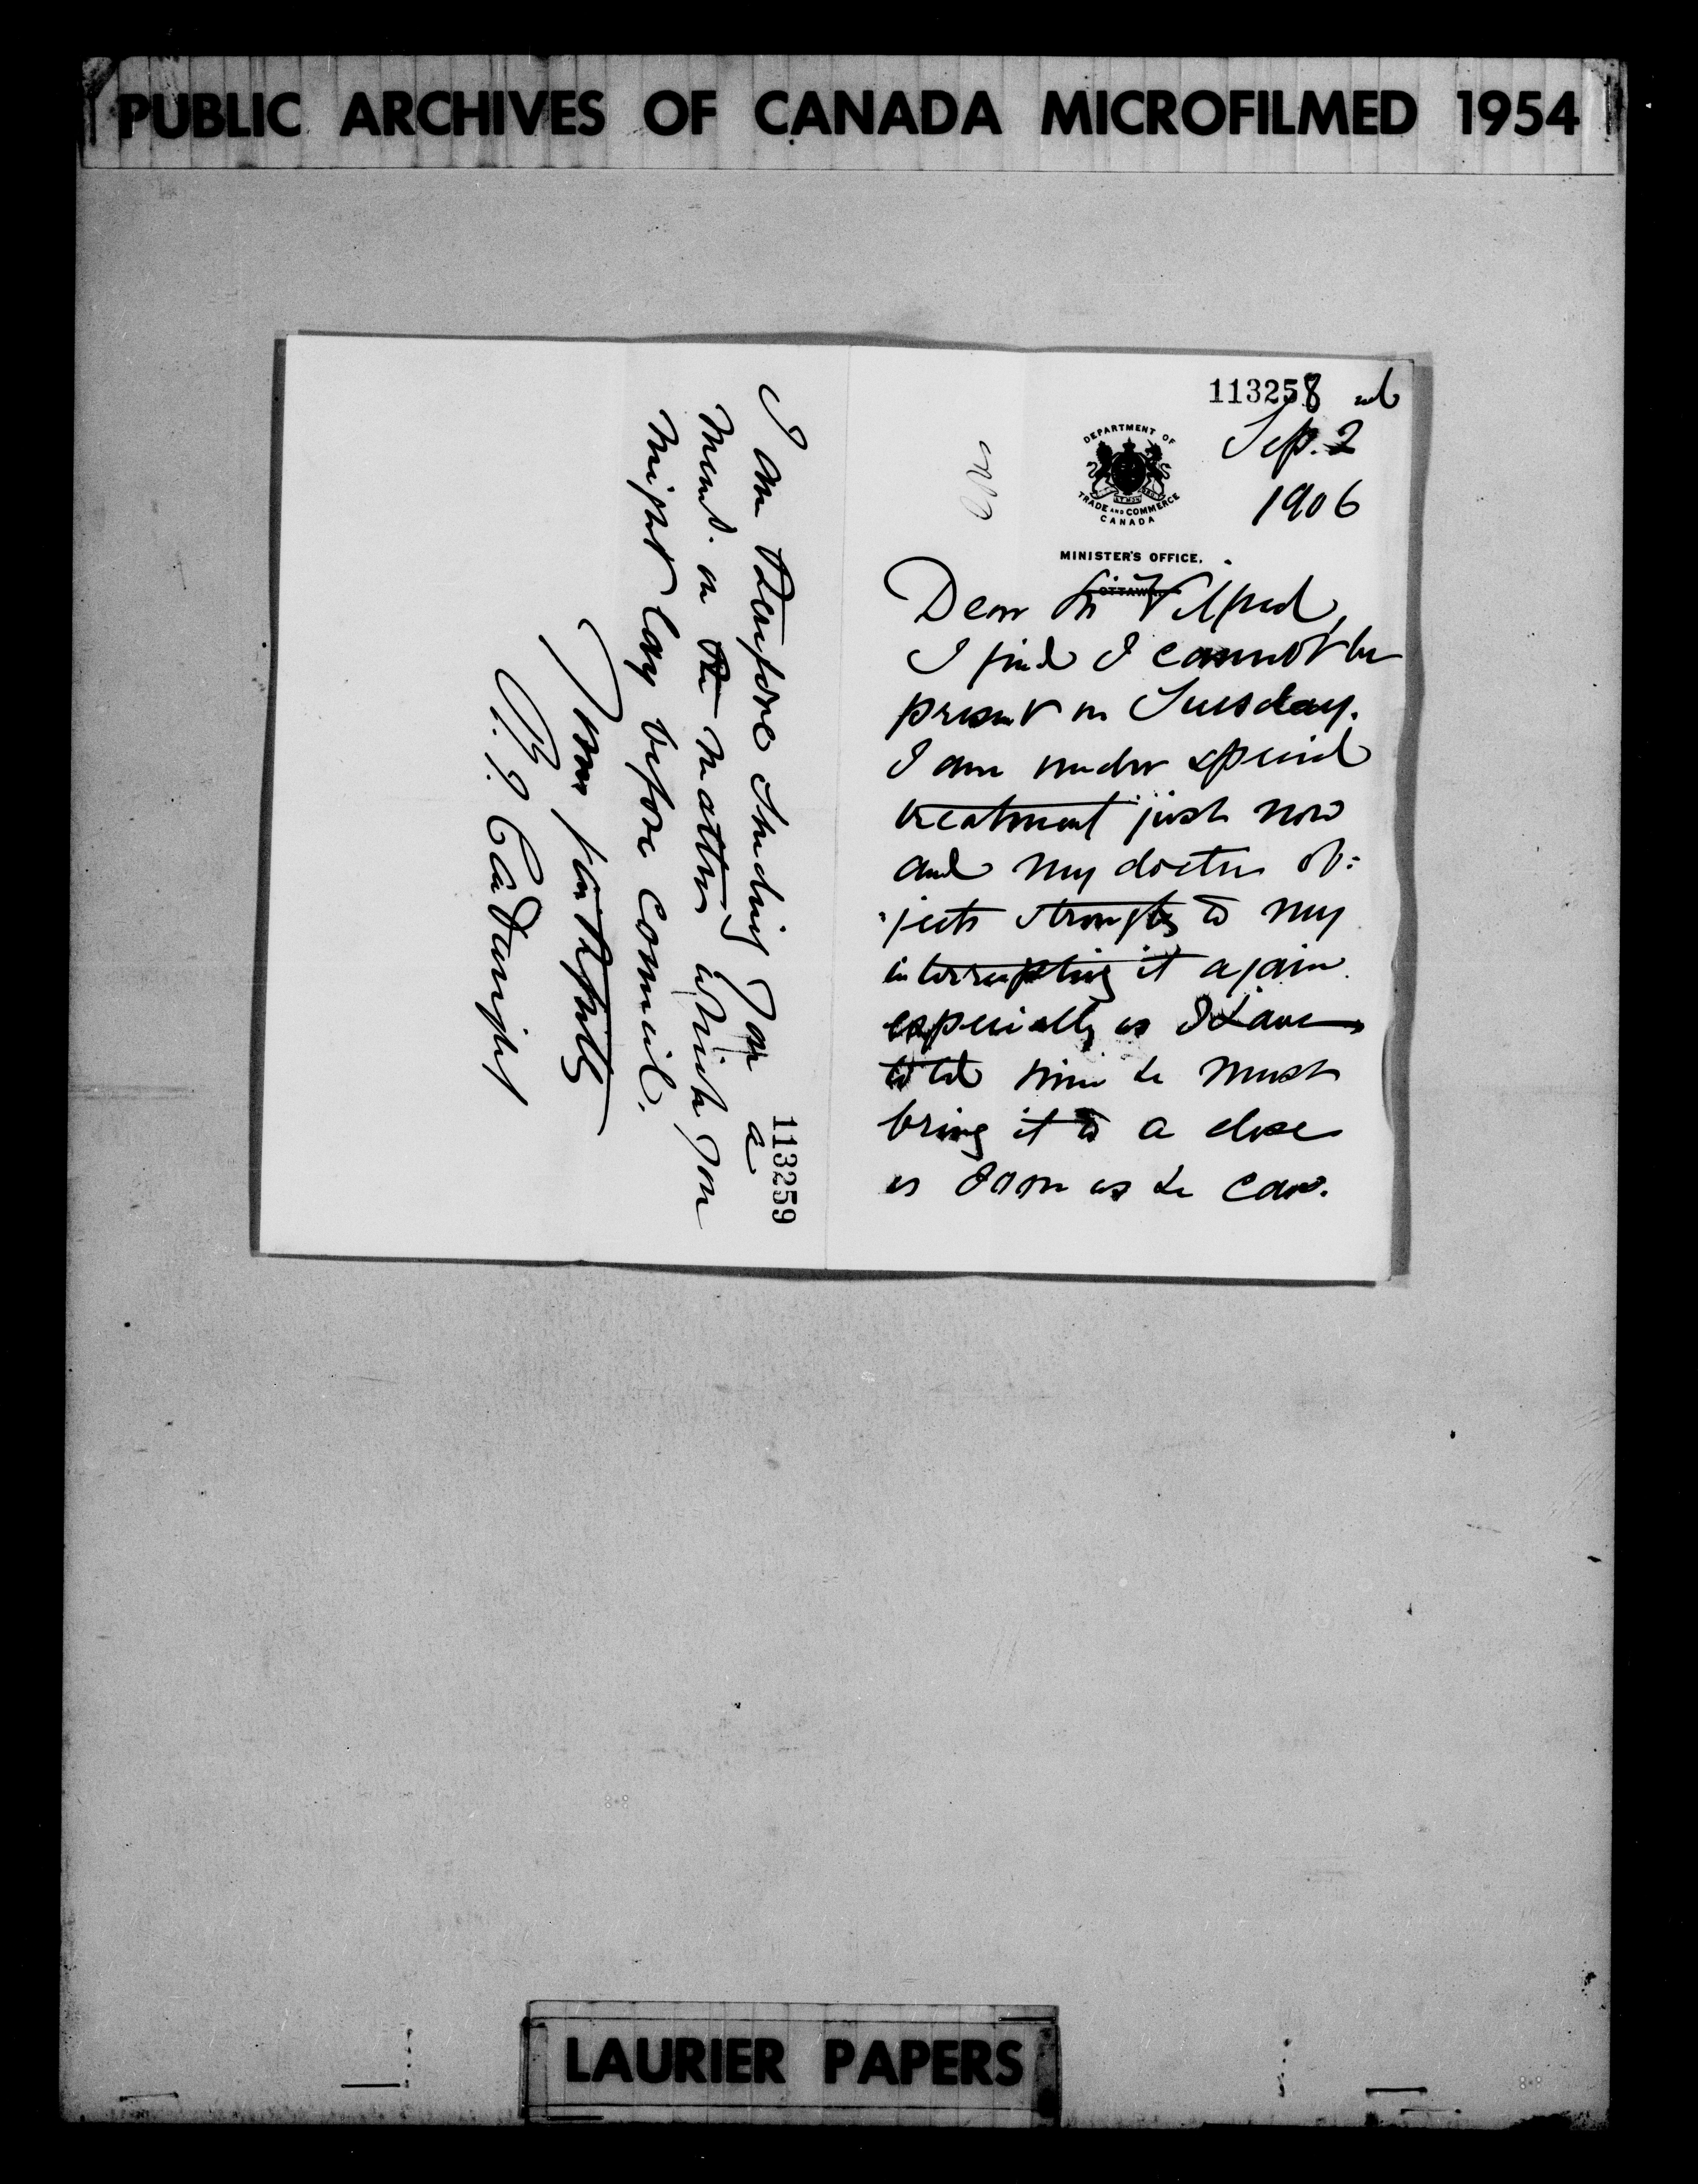 PUBLIC ARCHIVES OF CANADA MICROFILMED 1954
113258
Sep. 2
1906
DEPARTMENT OF
TRADE AND COMMERCE
CANADA
MINISTER'S OFFICE.
OTTAWA
Dear Sir Wilfred,
I find I cannot be
present on Tuesday.
I am under special
treatment just now
and my doctor ob=
jects strongly to my
interrupting it again
especially as I have
told him he must
bring it to a close
as soon as he can.
113259
I am therefore sending you a
memd. on the matter which you
might lay before Council.
Yours faithfully
R. J. Cartwright
LAURIER PAPERS